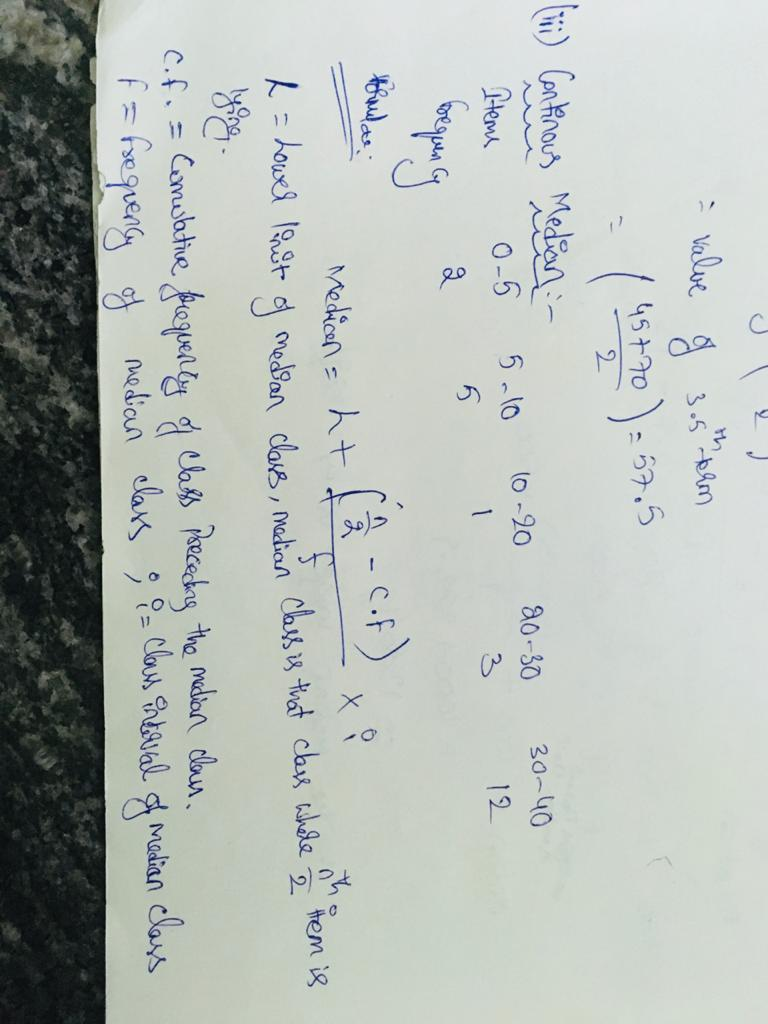 = value of 3.5th term
= (45+70/2) = 57.5
(iii) Continous Median :-
Items 0-5 5-10 10-20 20-30 30-40
frequency 2 5 1 3 12
Median = L + (n/2 - c.f)/f × i
L = Lower limit of median class, median class is that class whose n/2 th item is
lying.
C.f. = Cumulative frequency of class preceding the median class.
f = frequency of median class ; i = class interval of median class